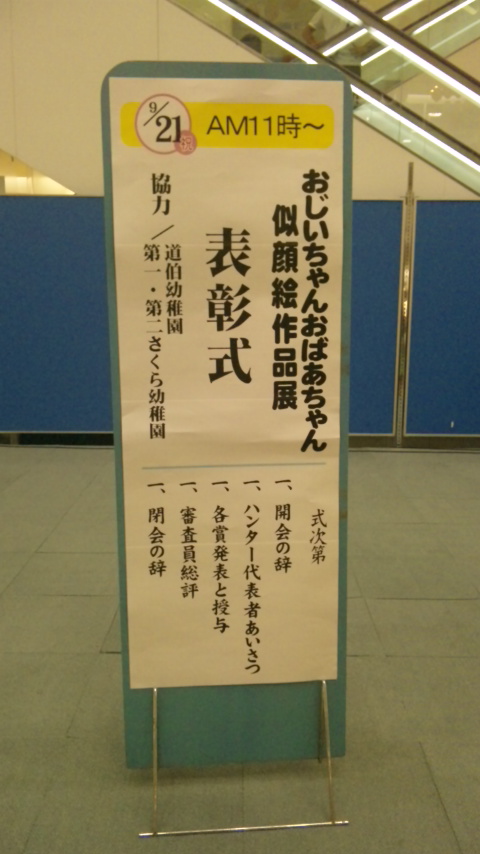 9/21 祝
AM11時～
おじいちゃんおばあちゃん
似顔絵作品展
表彰式
協力／道伯幼稚園
第一・第二さくら幼稚園
式次第
一、開会の辞
一、ハンター代表者あいさつ
一、各賞発表と授与
一、審査員総評
一、閉会の辞